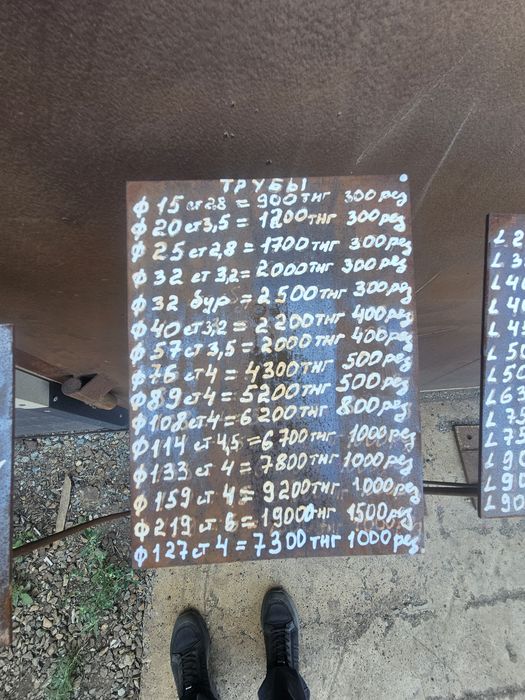 ТРУБЫ
φ 15 ст 2,8 = 900 тнг 300 рез
φ 20 ст 3,5 = 1200 тнг 300 рез
φ 25 ст 2,8 = 1700 тнг 300 рез
φ 32 ст 3,2 = 2000 тнг 300 рез
φ 32 бур = 2500 тнг 300 рез
φ 40 ст 3,2 = 2200 тнг 400 рез
φ 57 ст 3,5 = 2000 тнг 400 рез
φ 76 ст 4 = 4300 тнг 500 рез
φ 89 ст 4 = 5200 тнг 500 рез
φ 108 ст 4 = 6200 тнг 800 рез
φ 114 ст 4,5 = 6700 тнг 1000 рез
φ 133 ст 4 = 7800 тнг 1000 рез
φ 159 ст 4 = 9200 тнг 1000 рез
φ 219 ст 6 = 19000 тнг 1500 рез
φ 127 ст 4 = 7300 тнг 1000 рез